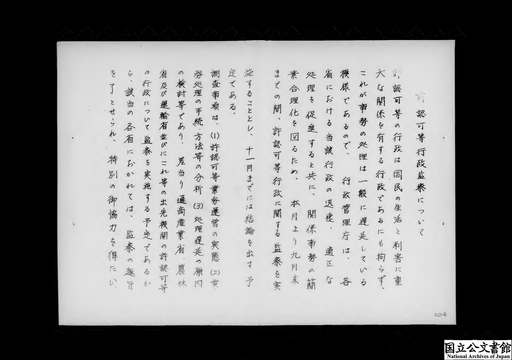 許認可等行政監察について
許認可等の行政は国民の生活と利害に重
大な関係を有する行政であるにも拘らず、
これが事務の処理は一般に遅延している
模様であるので、行政管理庁は、各
省における当該行政の迅速、適正な
処理を促進すると共に、関係事務の簡
素合理化を図るため、本月より九月末
までの間、許認可等行政に関する監察を実
施することとし、十一月までには結論を出す予
定である。
調査事項は、(1)許認可等業務運営の実態(2)事
務処理の手続方法等の分析(3)処理遅延の原因
の検討等であり、差当り通商産業省、農林
省及び運輸省並びにこれ等の出先機関の許認可等
の行政について監察を実施する予定であるか
ら、該当の各省におかれては、監察の趣旨
を了とせられ、特別の御協力を得たい。
004
国立公文書館
National Archives of Japan